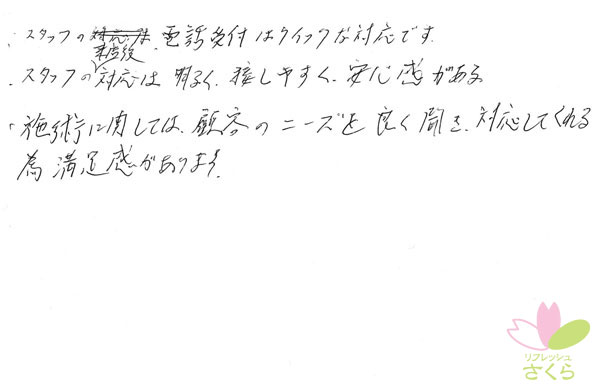 ・スタッフの電話受付はクイックな対応です。
・スタッフの来店後対応は明るく、接しやすく、安心感がある
・施術に関しては、顧客のニーズを良く聞き、対応してくれる
為満足感があります。
リフレッシュ
さくら